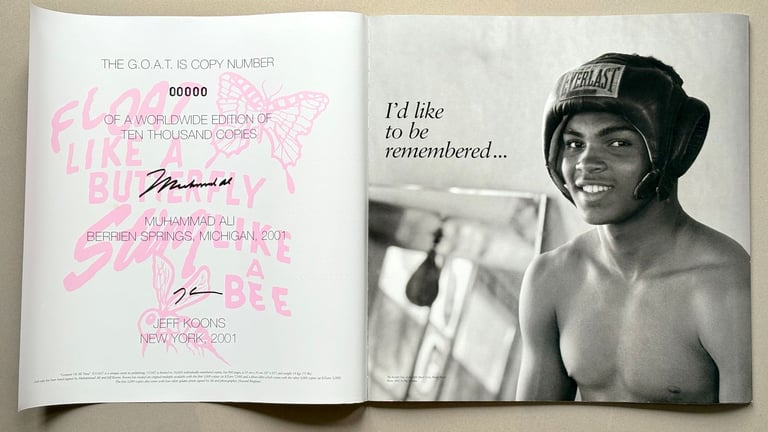 THE G.O.A.T. IS COPY NUMBER
00000
OF A WORLDWIDE EDITION OF
TEN THOUSAND COPIES
FLOAT
LIKE A
BUTTERFLY
Muhammad Ali
MUHAMMAD ALI
BERRIEN SPRINGS, MICHIGAN, 2001
STING LIKE
A
BEE
JEFF KOONS
NEW YORK, 2001
I'd like
to be
remembered...
EVERLAST